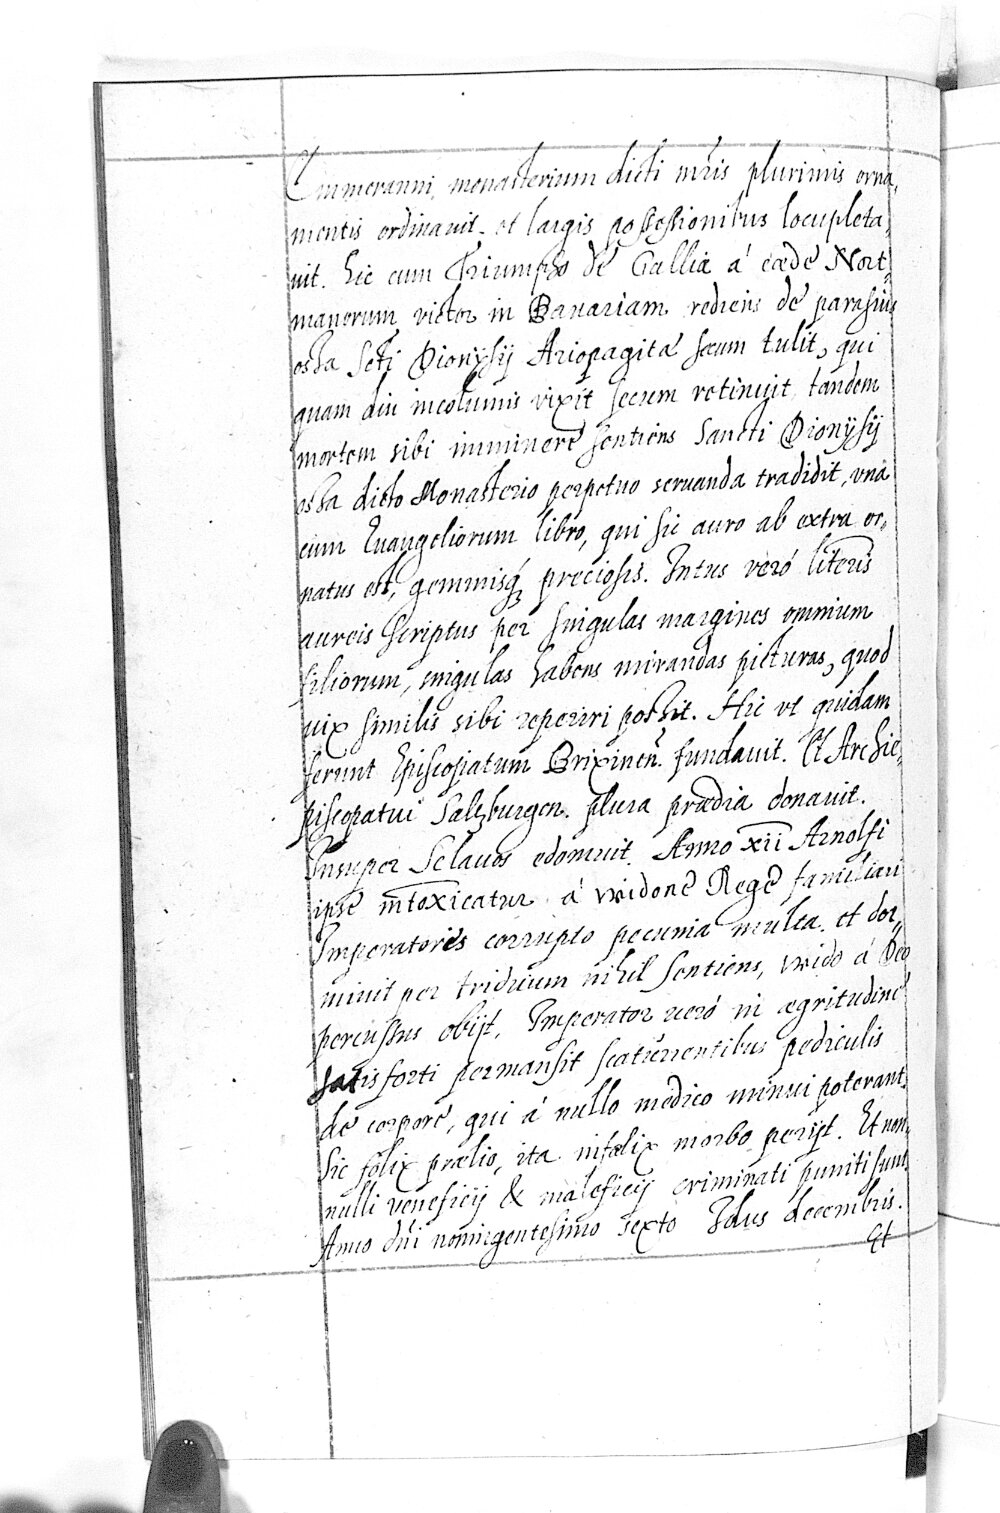 Emmeranni, monasterium dicti mris plurimis orna,
mentis ordinauit. et largis possessionibus locupleta,
uit. hic cum Triumpho de Gallia á cæde Nort,
manorum victor in Bauariam rediens de parasius
ossa Scti Dionÿsij Ariopagitæ secum tulit, qui
quam diu incolumis vixit secum retinuit, tandem
mortem sibi imminere sentiens Sancti Dionÿsij
ossa dicto Monasterio perpetuo seruanda tradidit, vna
cum Euangeliorum libro, qui sic auro ab extra or,
natus est, gemmisq́ preciosis. Intus veró literis
aureis scriptus per singulas margines omnium
filiorum, singulas habens mirandas picturas, quod
uix similis sibi reperiri possit. Hic vt quidam
ferunt Episcopatum Brixinen̄. fundauit. Et Archie,
piscopatui Salzburgen. plura prædia donauit.
Insuper Sclauos edomuit. Anno xii Arnolfi
ipse intoxicatur á vvidone Rege familiari
Imperatoris corrupto pecunia multa. et dor,
miuit per triduum nihil sentiens, vvido á Deo
percussus obijt. Imperator ueró in ægritudine
satis forti permansit scaturrentibus pediculis
de corpore, qui á nullo medico minui poterant,
Sic fœlix prælio, ita infœlix morbo perijt. Et non,
nulli veneficij & maleficij criminati puniti sunt
Anno dn̄i noningentesimo sexto Idus decembris.
Et